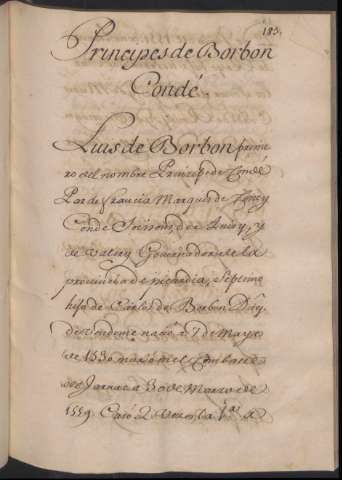 183.
Principes de Borbon
Condé.
Luis de Borbon prime
ro del nombre Principe de Condé
Par de francia Marques de Conty
Conde Soisons, de Anisy, y
de Valery Governador de la
provincia de picardia, septimo
hijo de Carlos de Borbon Duq.
de Vendome nacio a 7 de Mayo
de 1530 murio en el Combate
de Jarnac a 13 de Marzo de
1559. Casó 2 vezes, la 1.ra a